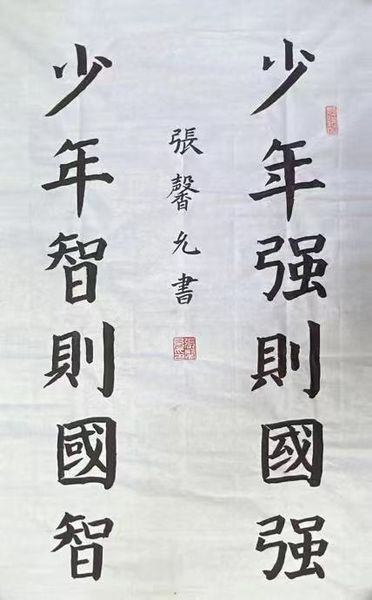 少年强則國强
少年智則國智
張馨允書